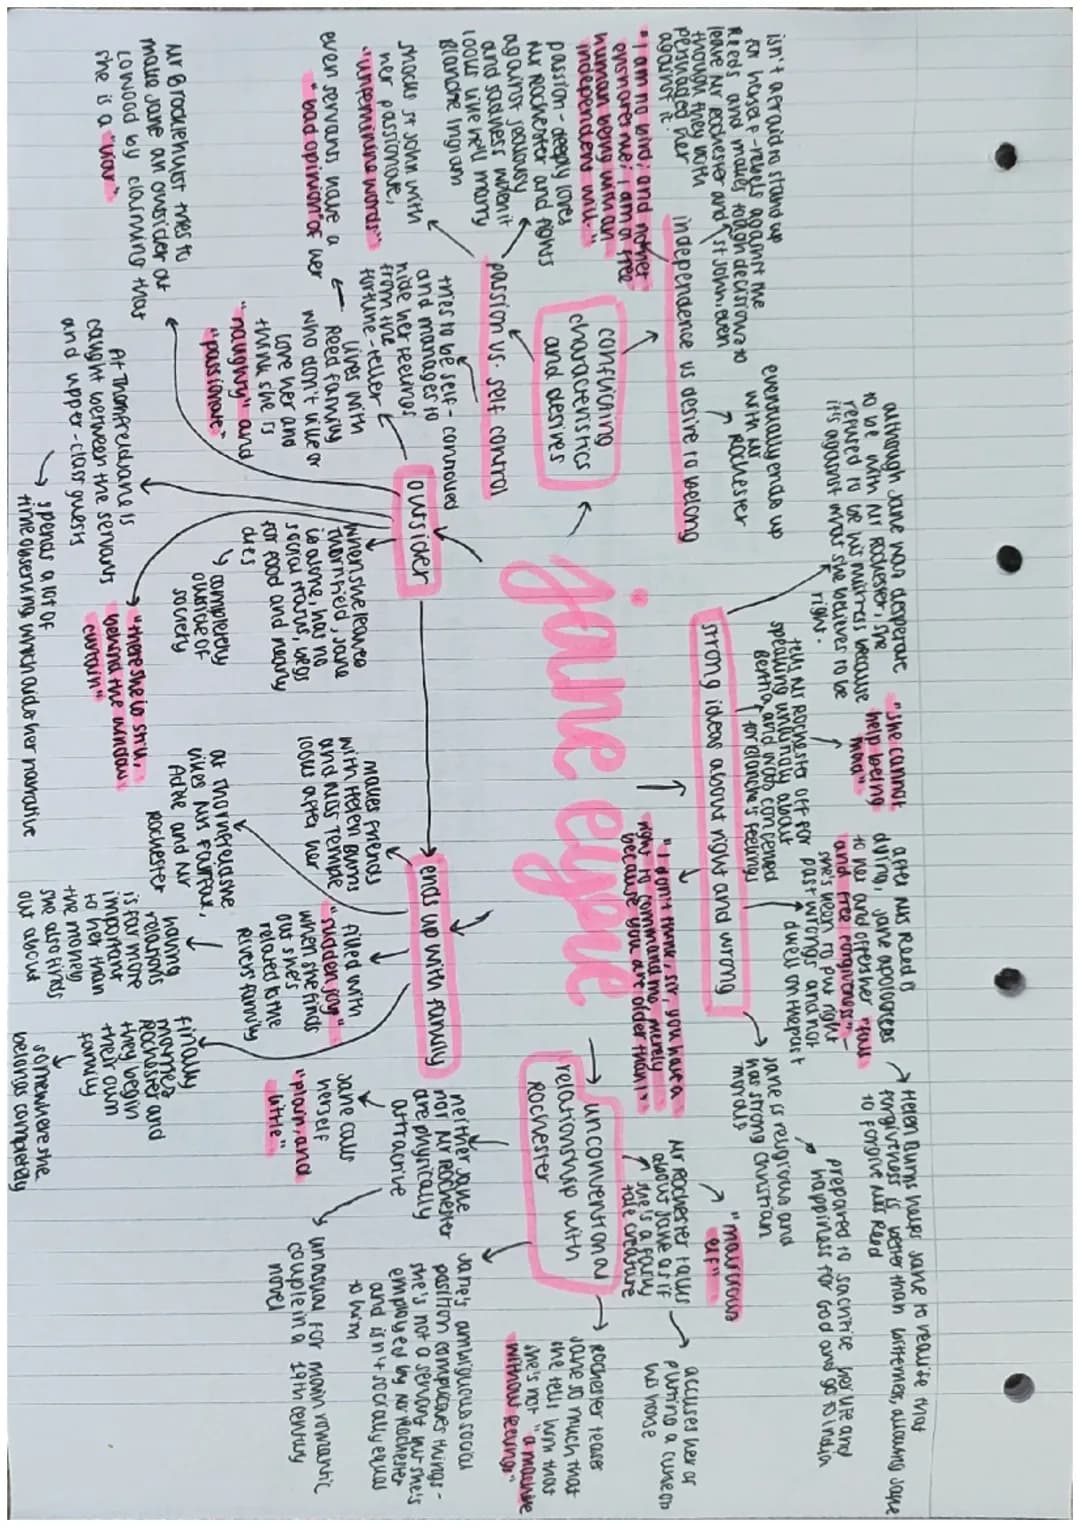 jane eyre
conflicting
characteristics
and desires
independence vs desire to belong
isn't afraid to stand up
for herself - rebels against the
Reeds and makes tough decisions to
leave Mr Rochester and St John, even
though they both
persuaded her
against it.
"I am no bird; and no net
ensnares me; I am a free
human being with an
independent will."
eventually ends up
with Mr
Rochester
passion vs. self control
passion - deeply loves
Mr Rochester and fights
against jealousy
and sadness when it
looks like he'll marry
Blanche Ingram
shocks St John with
her passionate,
"unfeminine words"
tries to be self-controlled
and manages to
hide her feelings
from the
fortune-teller
outsider
lives with
Reed family
who don't like or
love her and
think she is
"naughty" and
"passionate"
even servants have a
"bad opinion" of her
Mr Brocklehurst tries to
make Jane an outsider at
Lowood by claiming that
she is a "liar"
At Thornfield Jane is
caught between the servants
and upper-class guests
spends a lot of
time observing which aids her narrative
"there she is still,
behind the window
curtain"
when she leaves
Thornfield, Jane
is alone, has no
social status, begs
for food and nearly
dies
completely
outside of
society
ends up with family
makes friends
with Helen Burns
and Miss Temple
looks after her
at Thornfield she
likes Mrs Fairfax,
Adele and Mr
Rochester
filled with
"sudden joy"
when she finds
out she's
related to the
Rivers family
having
relations
is far more
important
to her than
the money
she also finds
out about
finally
marries
Rochester and
they begin
their own
family
somewhere she
belongs completely
strong ideas about right and wrong
although Jane was desperate
to be with Mr Rochester, she
refused to be his mistress because
it's against what she believes to be
right.
tells Mr Rochester off for
speaking unkindly about
Bertha, and was concerned
for Blanche's feelings
"she cannot
help being
mad"
"I don't think, sir, you have a
right to command me, merely
because you are older than I"
after Mrs Reed is
dying, Jane apologises
to her and offers her "full
and free forgiveness" -
she's keen to put right
past wrongs and not
dwell on the past
Helen Burns helps Jane to realise that
forgiveness is better than bitterness, allowing Jane
to forgive Mrs Reed
Jane is religious and
has strong Christian
morals
prepared to sacrifice her life and
happiness for God and go to India
unconventional
relationship with
Rochester
neither Jane
nor Mr Rochester
are physically
attractive
Jane calls
herself
"plain, and
little"
unusual for main romantic
couple in a 19th century
novel
Jane's ambiguous social
position complicates things -
she's not a servant but she's
employed by Mr Rochester
and isn't socially equal
to him
Mr Rochester talks
about Jane as if
she's a fairy
tale creature
"malicious
elf"
accuses her of
putting a curse on
his horse
Rochester teases
Jane so much that
she tells him that
she's not "a machine
without feelings"